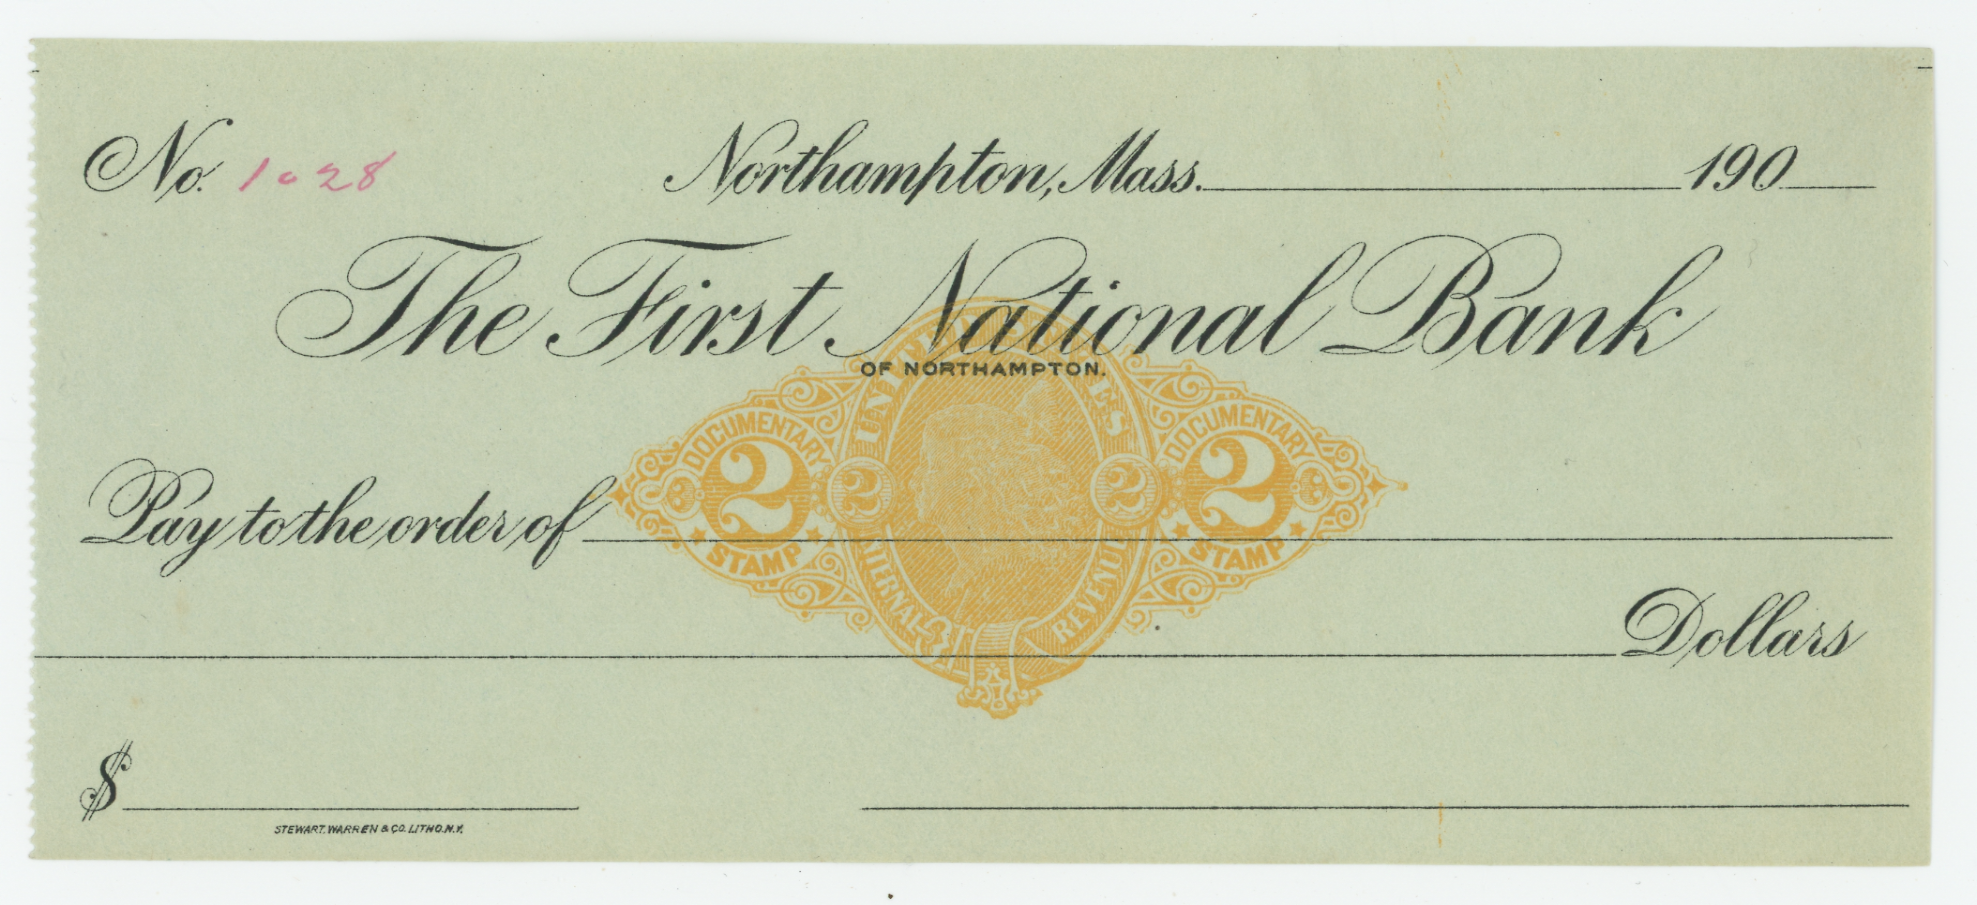 No. 1028 Northampton, Mass. 190
The First National Bank
OF NORTHAMPTON.
UNITED STATES
DOCUMENTARY 2 STAMP
2
2
DOCUMENTARY 2 STAMP
INTERNAL REVENUE
Pay to the order of
Dollars
$
STEWART. WARREN & CO. LITHO. N.Y.